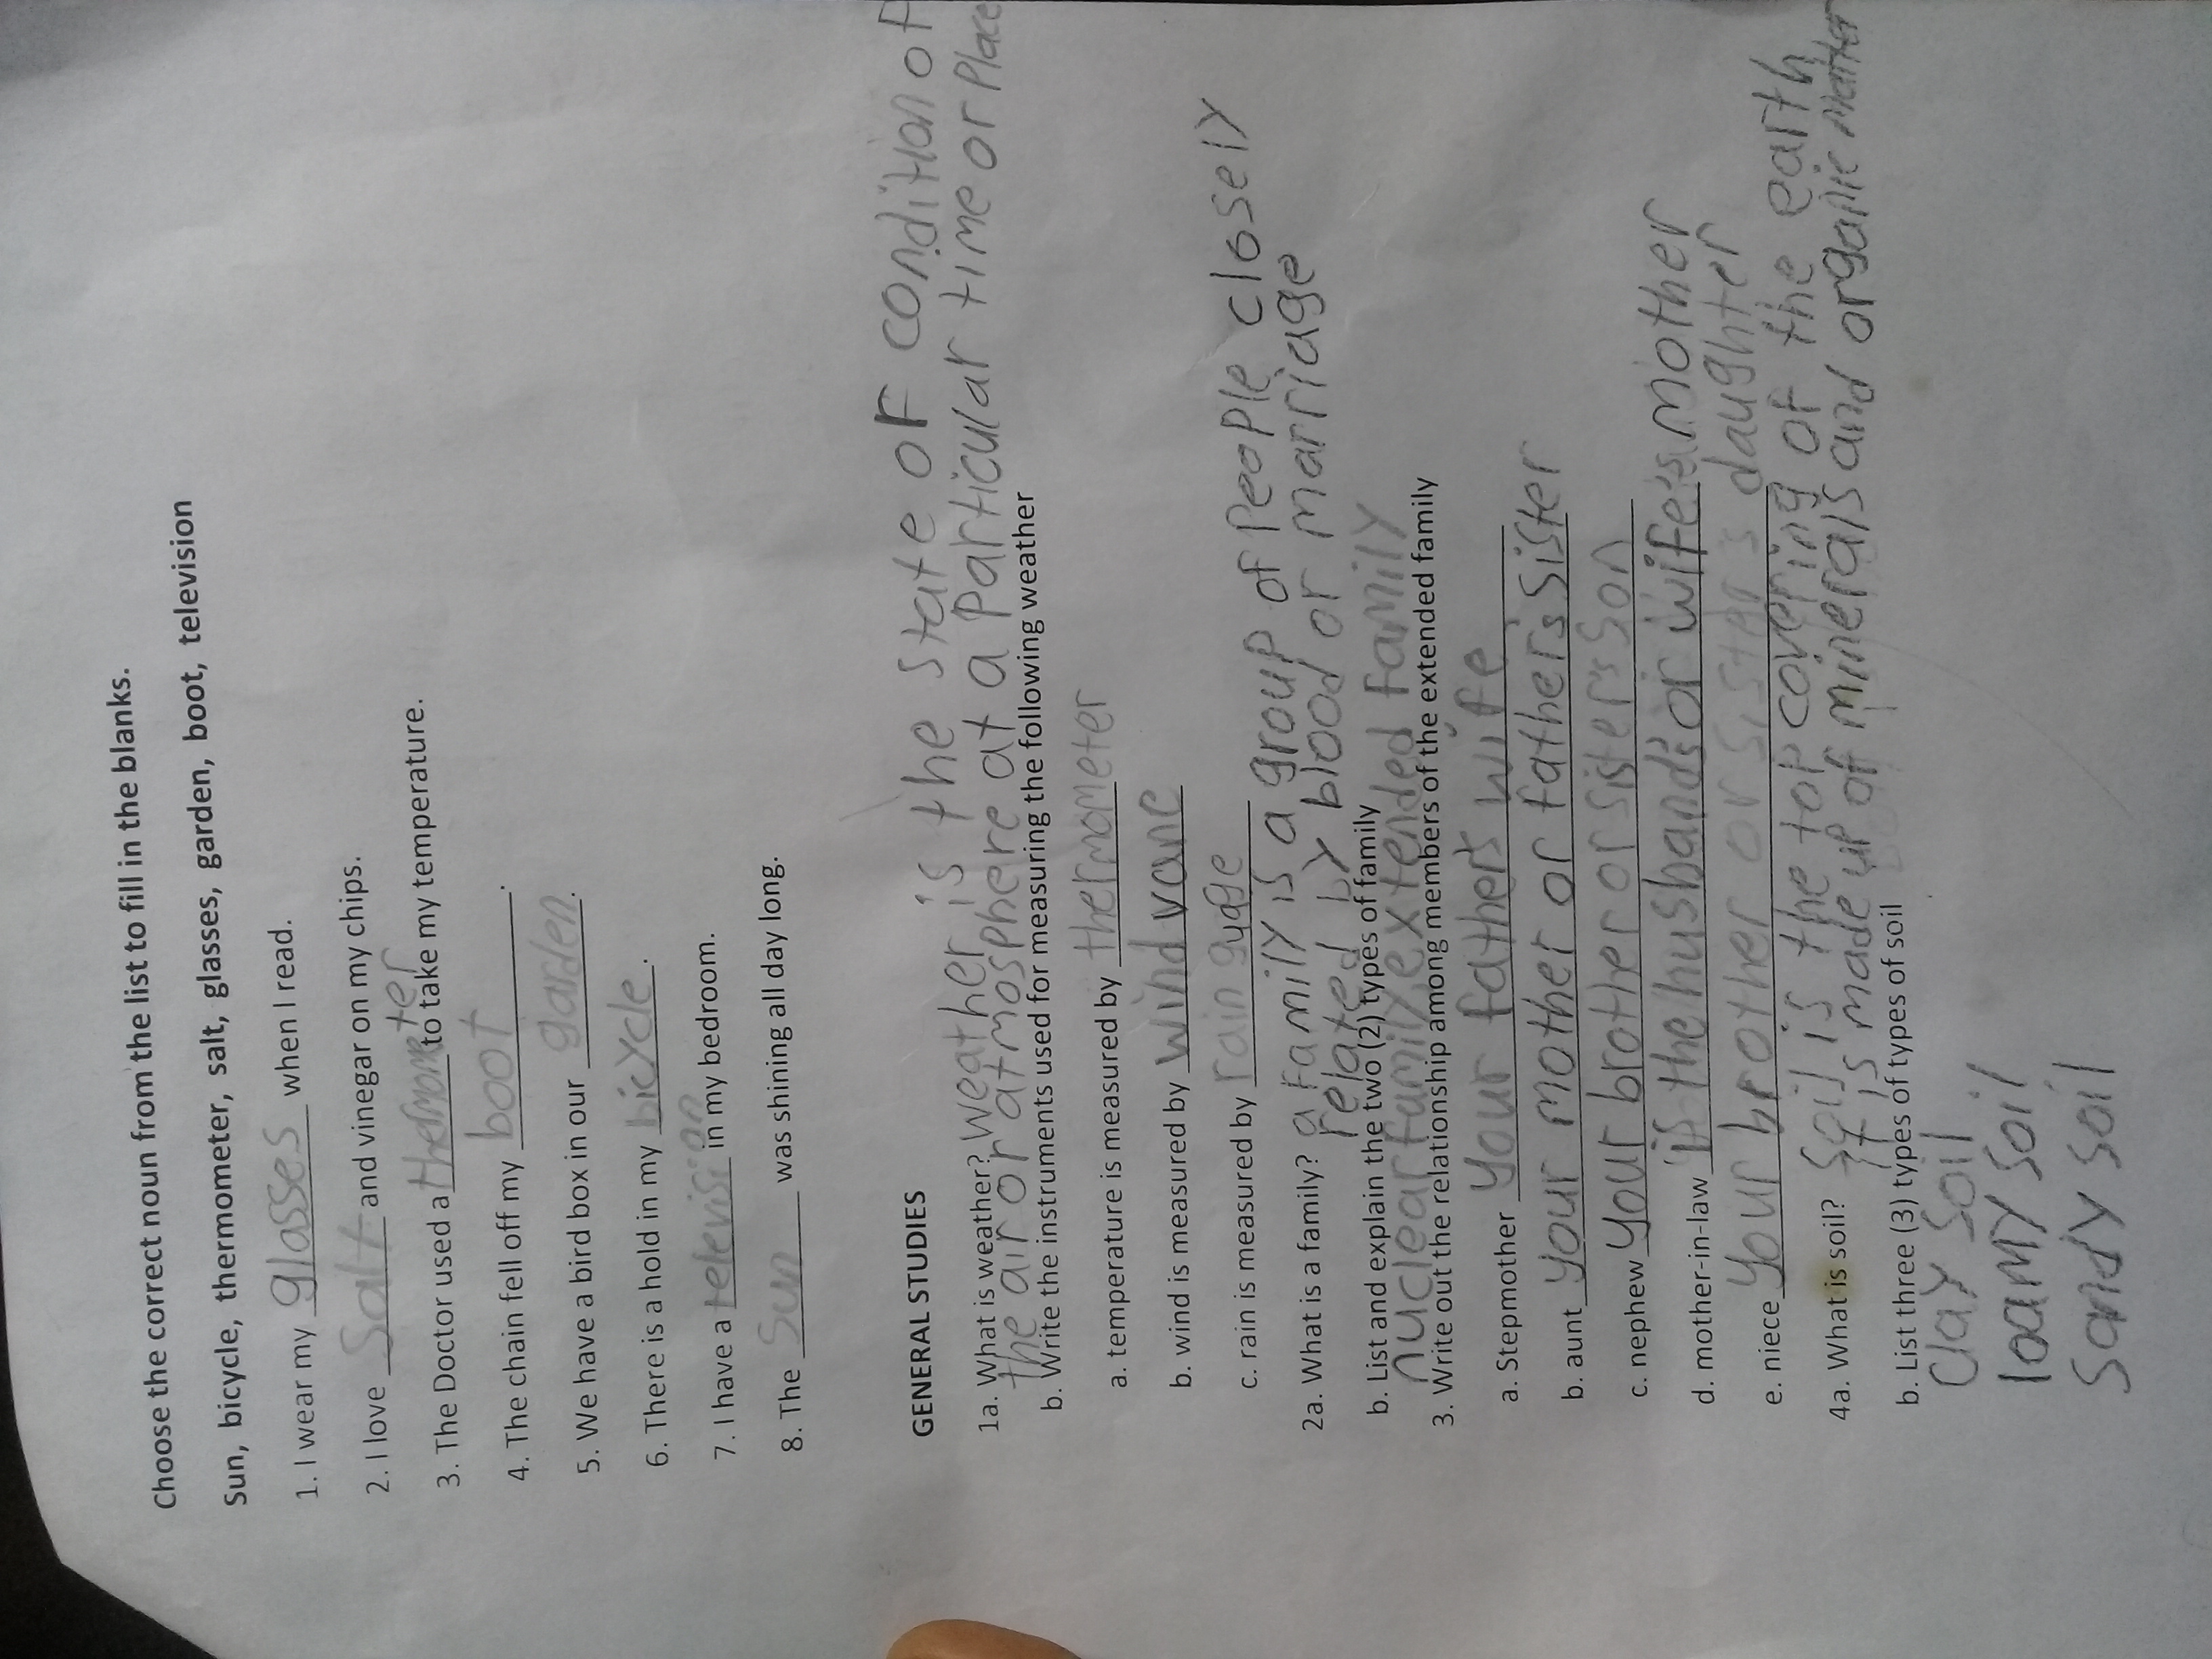 Choose the correct noun from the list to fill in the blanks.
Sun, bicycle, thermometer, salt, glasses, garden, boot, television
1. I wear my glasses when I read.
2. I love Salt and vinegar on my chips.
3. The Doctor used a thermometer to take my temperature.
4. The chain fell off my boot.
5. We have a bird box in our garden.
6. There is a hold in my bicycle.
7. I have a television in my bedroom.
8. The Sun was shining all day long.
GENERAL STUDIES
1a. What is weather? weather is the state or condition of
the air or atmosphere at a Particular time or Place
b. Write the instruments used for measuring the following weather
a. temperature is measured by thermometer
b. wind is measured by wind vane
c. rain is measured by rain guage
2a. What is a family? a family is a group of People closely
related by blood or marriage
b. List and explain the two (2) types of family
nuclear family extended family
3. Write out the relationship among members of the extended family
a. Stepmother your father's wife
b. aunt your mother or father's sister
c. nephew your brother or sister's son
d. mother-in-law is the husband's or wife's mother
e. niece your brother or sister's daughter
4a. What is soil? Soil is the top covering of the earth
It is made up of minerals and organic matter
b. List three (3) types of types of soil
Clay soil
loamy soil
Sandy soil